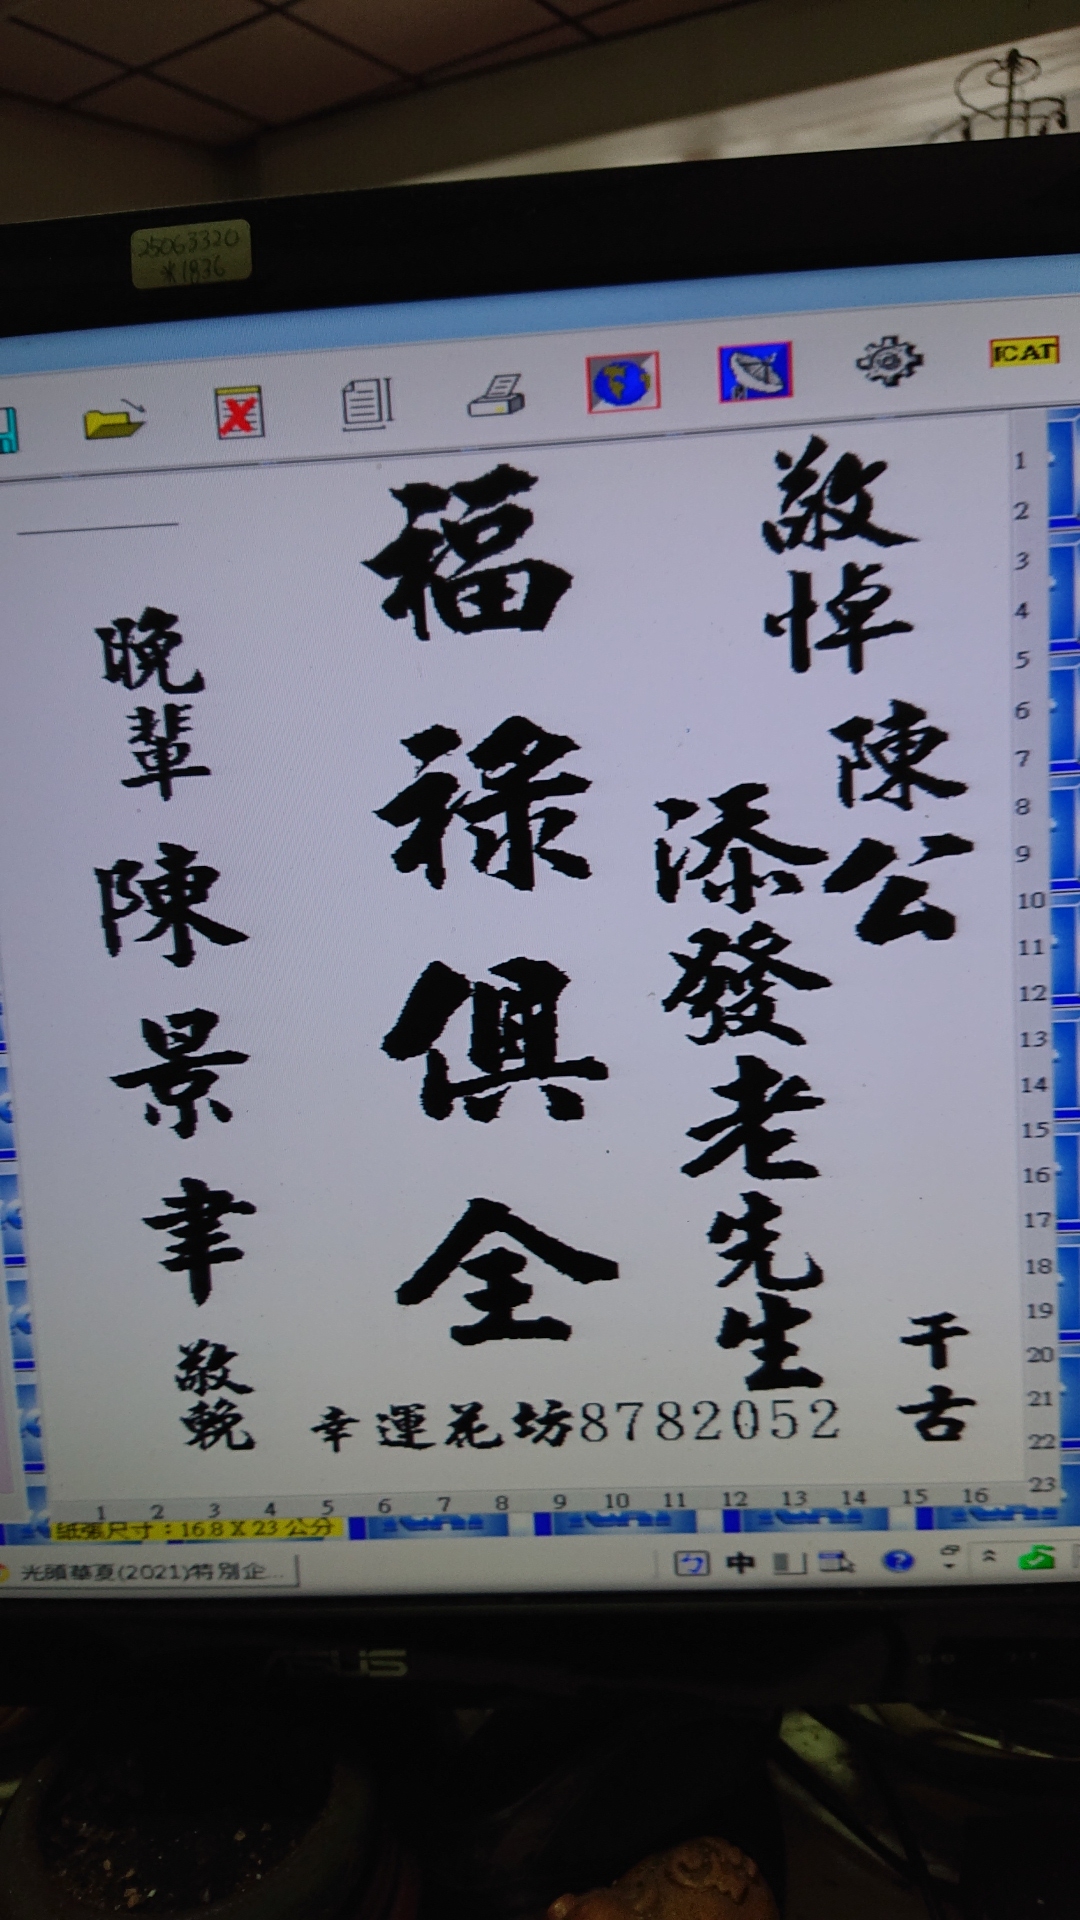 25063320
*1836
ICAT
敬悼
陳公
添發老先生
千古
福祿俱全
晚輩
陳景聿
敬輓
幸運花坊8782052
1
2
3
4
5
6
7
8
9
10
11
12
13
14
15
16
17
18
19
20
21
22
23
1 2 3 4 5 6 7 8 9 10 11 12 13 14 15 16
紙張尺寸：16.8 X 23 公分
光頭華夏(2021)特別企...
中
ASUS